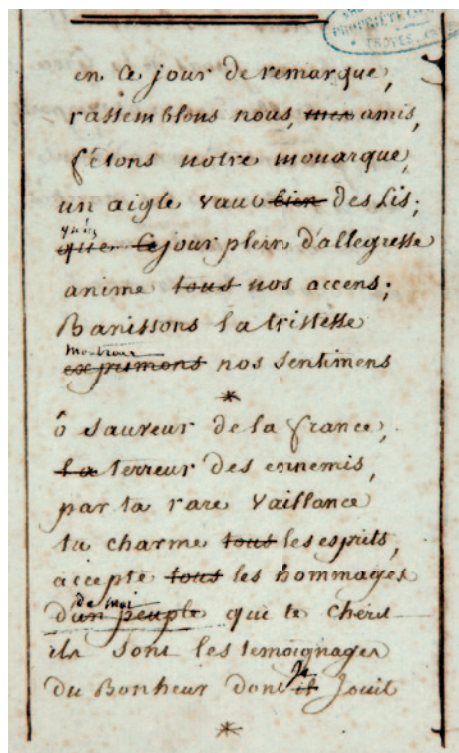 PROPRIÉTÉ
TROYES
en ce jour de remarque,
rassemblons nous, mes amis,
fêtons notre monarque,
un aigle vaut bien des Lis;
qu'un
que ce jour plein d'allegresse
anime tous nos accens;
Banissons la tristesse
montrons
exprimons nos sentimens
*
ô sauveur de la france,
la terreur des ennemis,
par ta rare vaillance
tu charme tous les esprits,
accepte tous les hommages
de moi
d'un peuple qui te cherit
ils sont les temoignages
je
du Bonheur dont il jouit
*